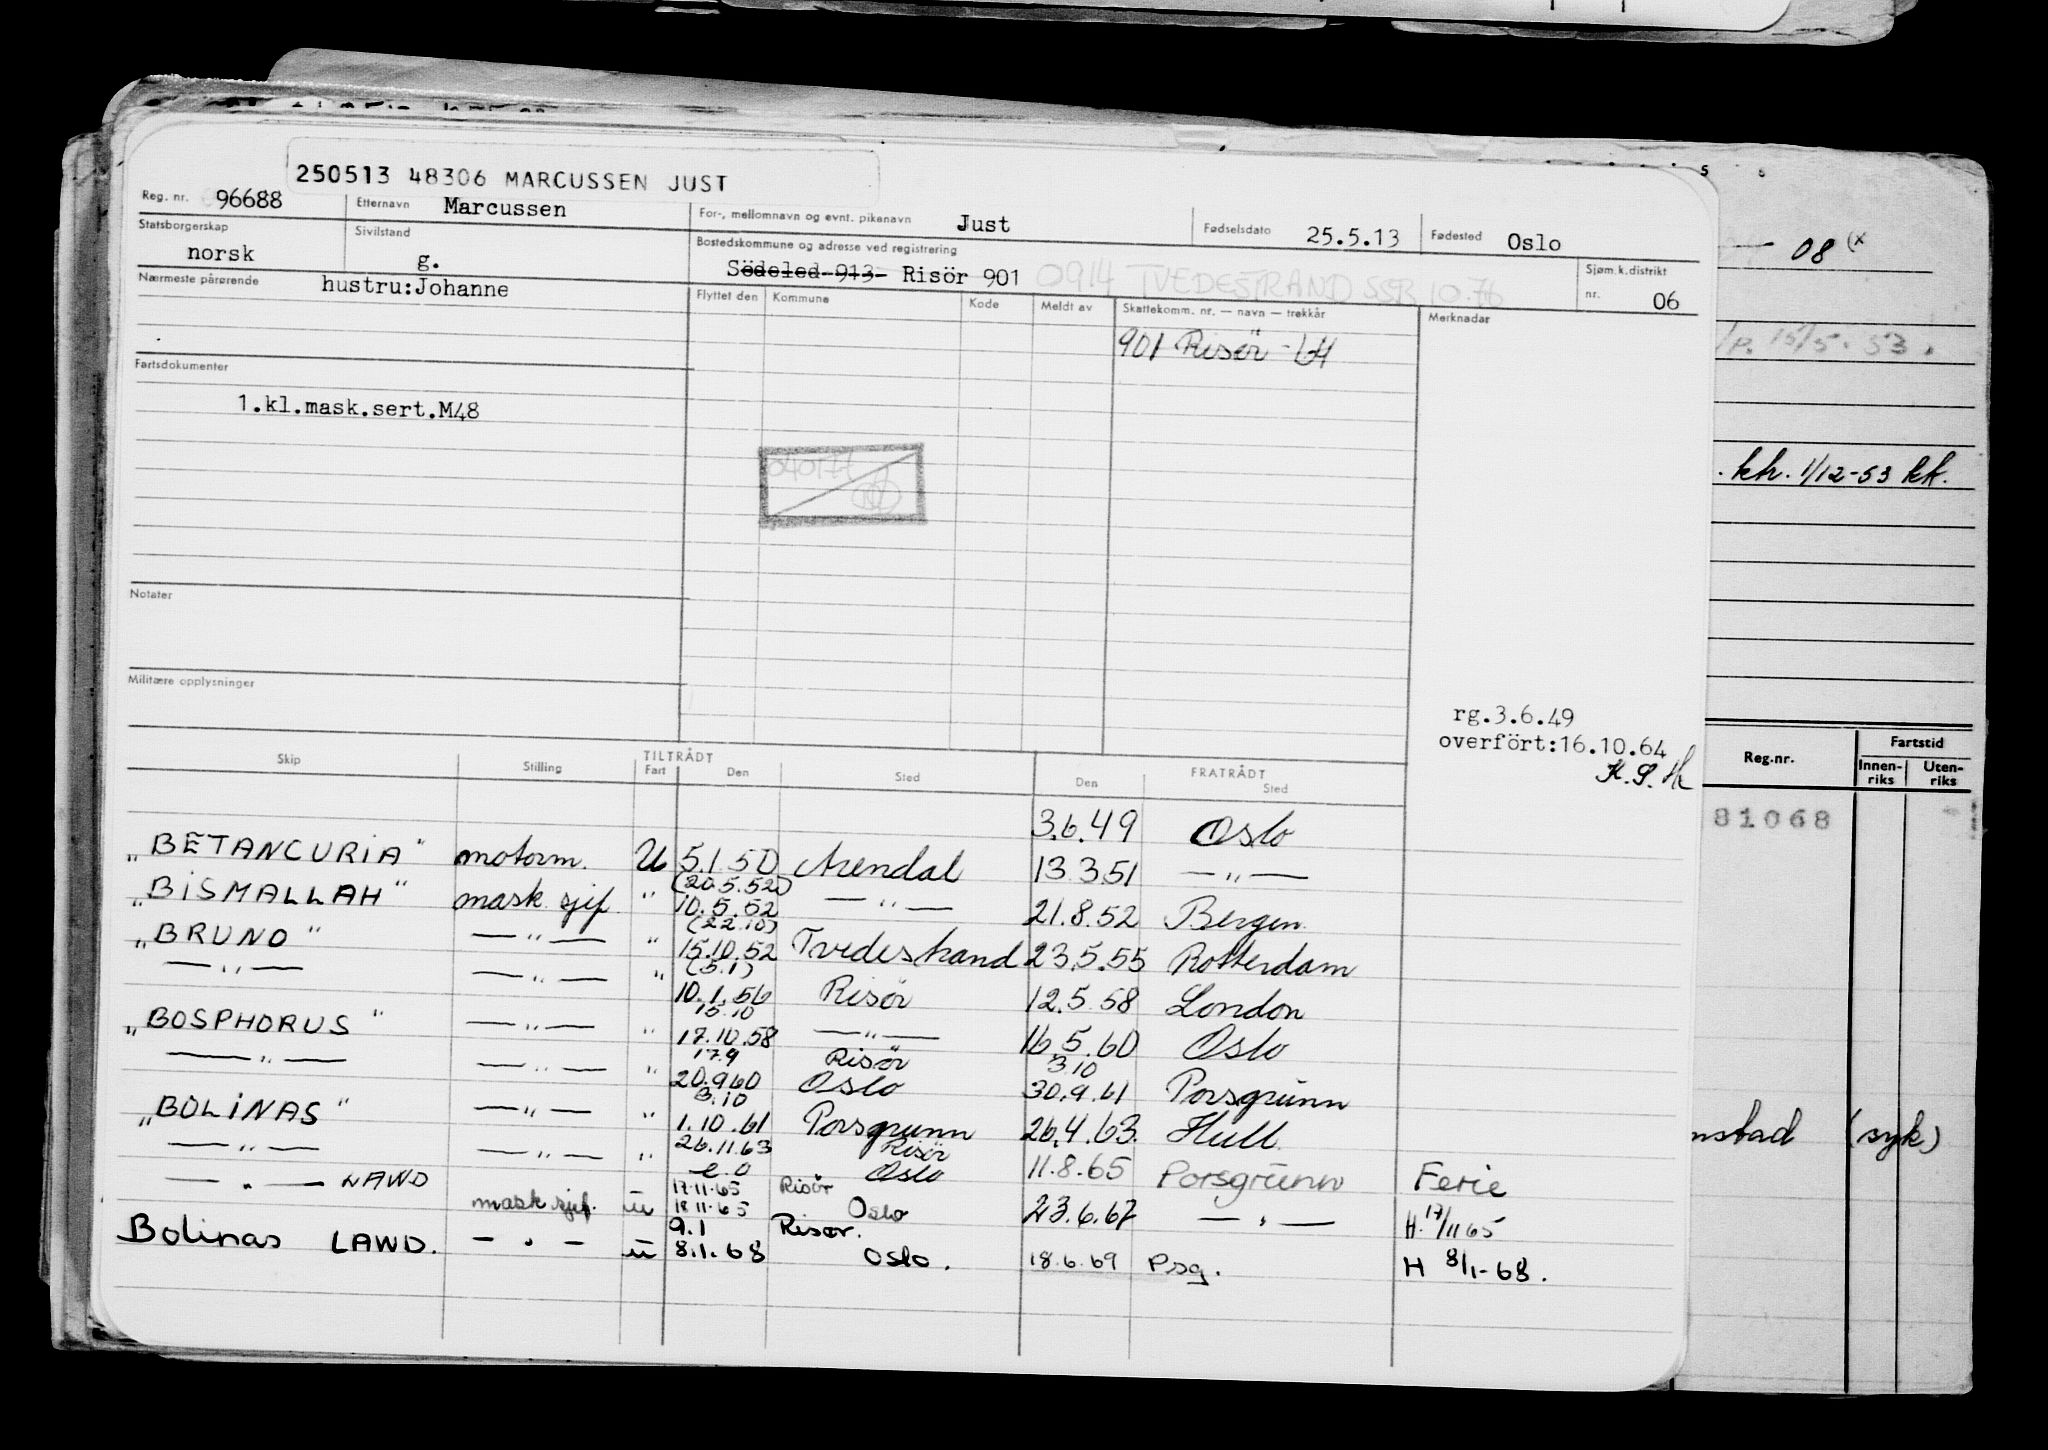 250513 48306 MARCUSSEN JUST
Reg. nr. 96688 Etternavn Marcussen For-, mellomnavn og evnt. pikenavn Just Fødselsdato 25.5.13 Fødested Oslo
Statsborgerskap norsk Sivilstand g. Bostedskommune og adresse ved registrering Södeled 913 Risör 901 0914 TVEDESTRAND SSB 10.76 Sjøm.k.distrikt nr. 06
Nærmeste pårørende hustru:Johanne
Flyttet den Kommune Kode Meldt av Skattekomm. nr. — navn — trekkår Merknader
901 Risör -64
Fartsdokumenter
1.kl.mask.sert.M48
Notater
Militære opplysninger
rg.3.6.49
overfört:16.10.64
TILTRÅDT FRATRÅDT
Skip Stilling Fart Den Sted Den Sted
3.6.49 Oslo
"BETANCURIA" motorm. U 5.1.50 Arendal 13.3.51 — " —
(20.5.52)
"BISMALLAH" mask sjef " 10.5.52 — " — 21.8.52 Bergen
(22.10)
"BRUNO" — " — " 15.10.52 Tvedestrand 23.5.55 Rotterdam
(5.1)
— " — — " — " 10.1.56 Risör 12.5.58 London
15.10
"BOSPHORUS" — " — " 17.10.58 — " — 16.5.60 Oslo
17.9 Risör 3.10
— " — — " — " 20.9.60 Oslo 30.9.61 Porsgrunn
3.10
"BOLINAS" — " — " 1.10.61 Porsgrunn 26.4.63 Hull
26.11.63 Risör
— " — — " — " e.o Oslo 11.8.65 Porsgrunn Ferie
17.11.65 Risör
— " — LAWD mask sjef. u 18.11.65 Oslo 23.6.67 — " — H. 17/11 65
9.1 Risør.
Bolinas LAWD. — " — u 8.1.68 Oslo. 18.6.69 Psg. H 8/1-68.
08 (x
15/5. 53.
kh. 1/12-53 kk.
Reg.nr. Fartstid
Innen-riks Uten-riks
81068
nstad (syk)